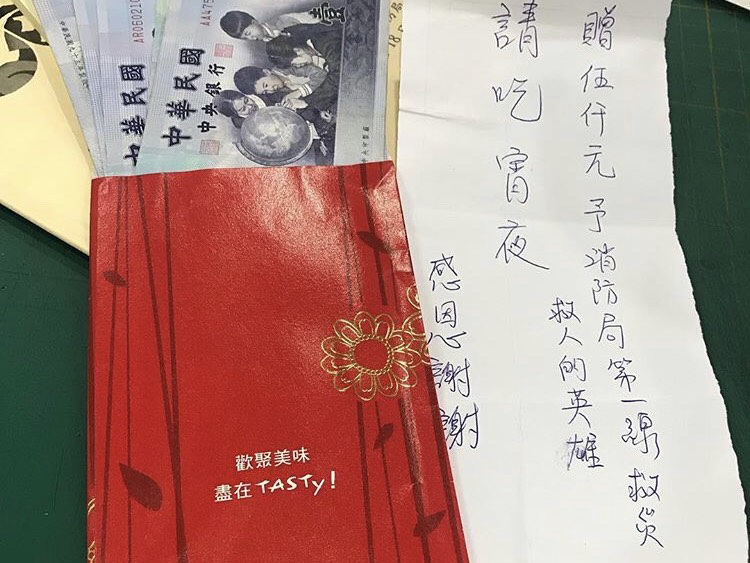 中華民國
AR0B0210
中華民國
中央銀行
AA475
壹
贈伍仟元予消防局第一線救災
救人的英雄
請吃宵夜
感恩謝謝
歡聚美味
盡在TASTy!